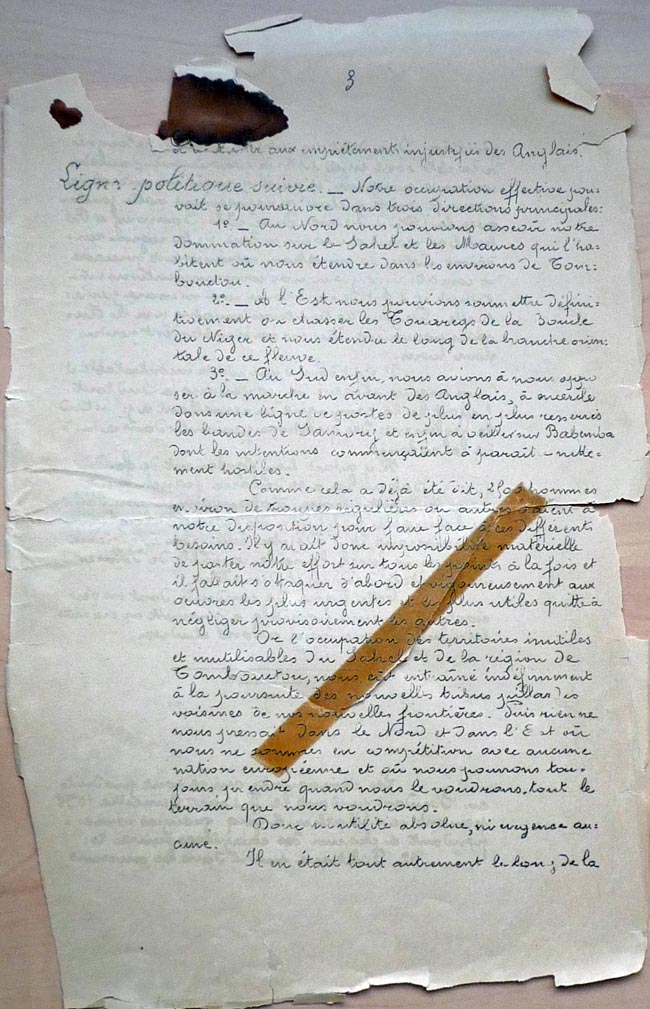 3
aux empiétements injustifiés des Anglais.
Ligne politique suivre. — Notre occupation effective pou-
vait se poursuivre dans trois directions principales:
1º — Au Nord nous pouvions asseoir notre
domination sur le Sahel et les Maures qui l'ha-
bitent où nous étendre dans les environs de Tom-
bouctou.
2º — A l'Est nous pouvions soumettre défini-
tivement ou chasser les Touaregs de la Boucle
du Niger et nous étendre le long de la branche orien-
tale de ce fleuve.
3º — Au Sud enfin, nous avions à nous oppo
ser à la marche en avant des Anglais, à encercler
dans une ligne de postes de plus en plus resserrés
les bandes de Samory et enfin à veiller sur Babemba
dont les intentions commençaient à parait nette-
ment hostiles.
Comme cela a déjà été dit, 2500 hommes
environ de troupes régulières ou autres étaient à
notre disposition pour faire face à ces différents
besoins. Il y avait donc impossibilité matérielle
de porter notre effort sur tous les points à la fois et
il fallait s'attaquer d'abord et vigoureusement aux
œuvres les plus urgentes et les plus utiles quitte à
négliger provisoirement les autres.
Or l'occupation des territoires inutiles
et inutilisables du Sahel et de la région de
Tombouctou, nous eut entrainé indéfiniment
à la poursuite des nouvelles tribus pillardes
voisines de nos nouvelles frontières. Puis rien ne
nous pressait dans le Nord et dans l'Est où
nous ne sommes en compétition avec aucune
nation européenne et où nous pouvons tou-
jours prendre quand nous le voudrons, tout le
terrain que nous voudrons.
Donc inutilité absolue, ni urgence au-
cune.
Il en était tout autrement le long de la